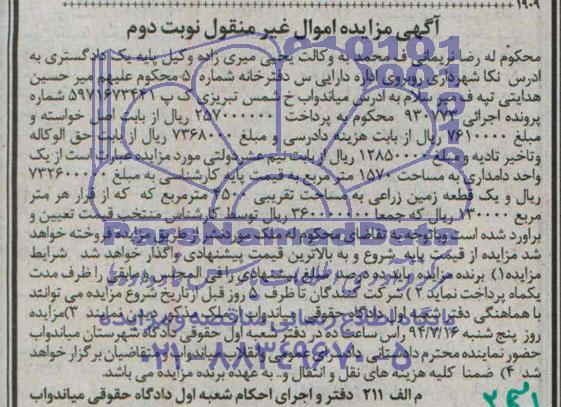 ۱۹۰۹
آگهی مزایده اموال غیر منقول نوبت دوم
محکوم له رضا نریمانی ف محمد به وکالت یحیی میری زاده وکیل پایه یک دادگستری به
ادرس نکا شهرداری روبروی اداره دارایی س دفترخانه شماره ۵ محکوم علیهم میر حسین
هدایتی تپه ف میر سلام به ادرس میاندواب خ شمس تبریزی ک پ ۵۹۷۱۶۷۳۴۴۱ شماره
پرونده اجرائی ۹۳۰۷۷۳ محکوم به پرداخت ۲۵۷۰۰۰۰۰۰ ریال از بابت اصل خواسته و
مبلغ ۷۶۱۰۰۰۰ ریال از بابت هزینه دادرسی و مبلغ ۷۳۶۸۰۰۰ ریال از بابت حق الوکاله
وتاخیر تادیه و مبلغ ۱۲۸۵۰۰۰۰ ریال از بابت نیم عشر دولتی مورد مزایده عبارت است از یک
واحد دامداری به مساحت ۱۵۷۰ مترمربع به قیمت پایه کارشناسی به مبلغ
ریال و یک قطعه زمین زراعی به مساحت تقریبی مترمربع که که از قرار هر متر
مربع ریال که جمعا ریال توسط کارشناس منتخب قیمت تعیین و
براورد شده است وباتوجه به تقاضای محکوم له ملک موردنظر از طریق مزایده فروخته خواهد
شد مزایده از قیمت پایه شروع و به بالاترین قیمت پیشنهادی واگذار خواهد شد شرایط
مزایده۱) برنده مزایده باید ده درصد مبلغ پیشنهادی را فی المجلس و مابقی را ظرف مدت
یکماه پرداخت نماید ۲) شرکت کنندگان تا ظرف ۵ روز قبل از تاریخ شروع مزایده می توانند
با هماهنگی دفتر شعبه اول دادگاه حقوقی میاندواب از ملک مذکور دیدن نمایند ۳)مزایده
روز پنج شنبه ۹۴/۷/۱۶ راس ساعت ده در دفتر شعبه اول حقوقی دادگاه شهرستان میاندواب
حضور نماینده محترم دادستانی دادسرای عمومی وانقلاب میاندواب و متقاضیان برگزار خواهد
شد ۴) ضمنا کلیه هزینه های نقل و انتقال و.. به عهده برنده مزایده می باشد.
م الف ۲۱۱ دفتر و اجرای احکام شعبه اول دادگاه حقوقی میاندواب
ParsNamadData
پایگاه اطلاع رسانی مناقصه و مزایده
۰۲۱-۸۸۳۴۹۶۷۰-۵